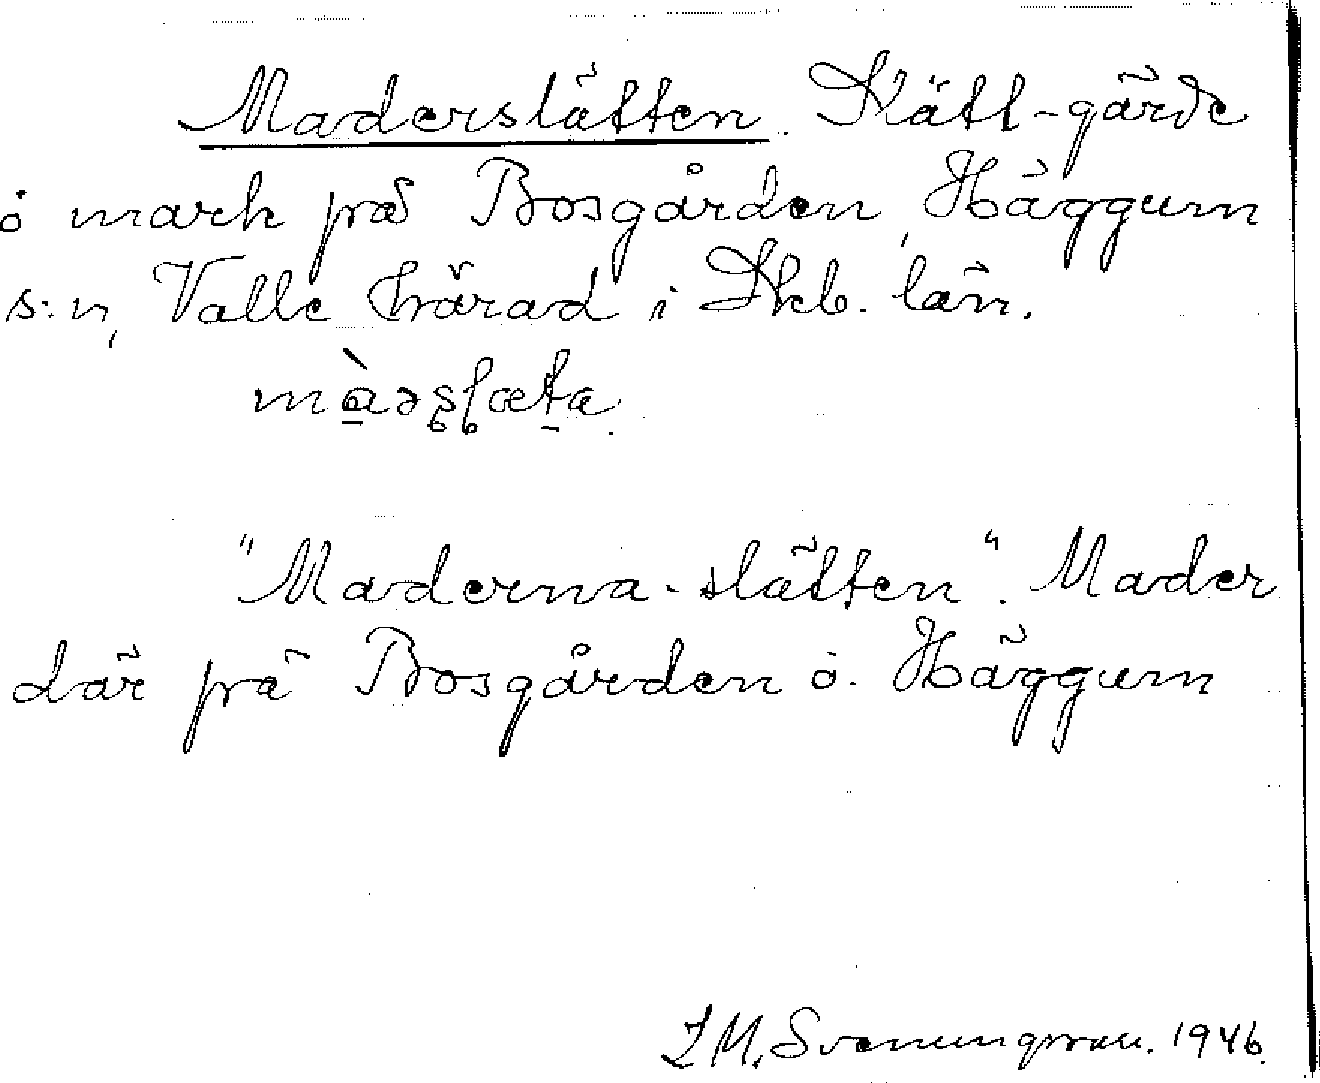 Maderslätten. Slätt-gärde
o mark på Bosgården, Häggum
s:n, Valle härad i Skb. län.
màəʂɭæta
"Maderna-slätten". Mader
där på Bosgården o. Häggum
Z M. Svenungsson. 1946.